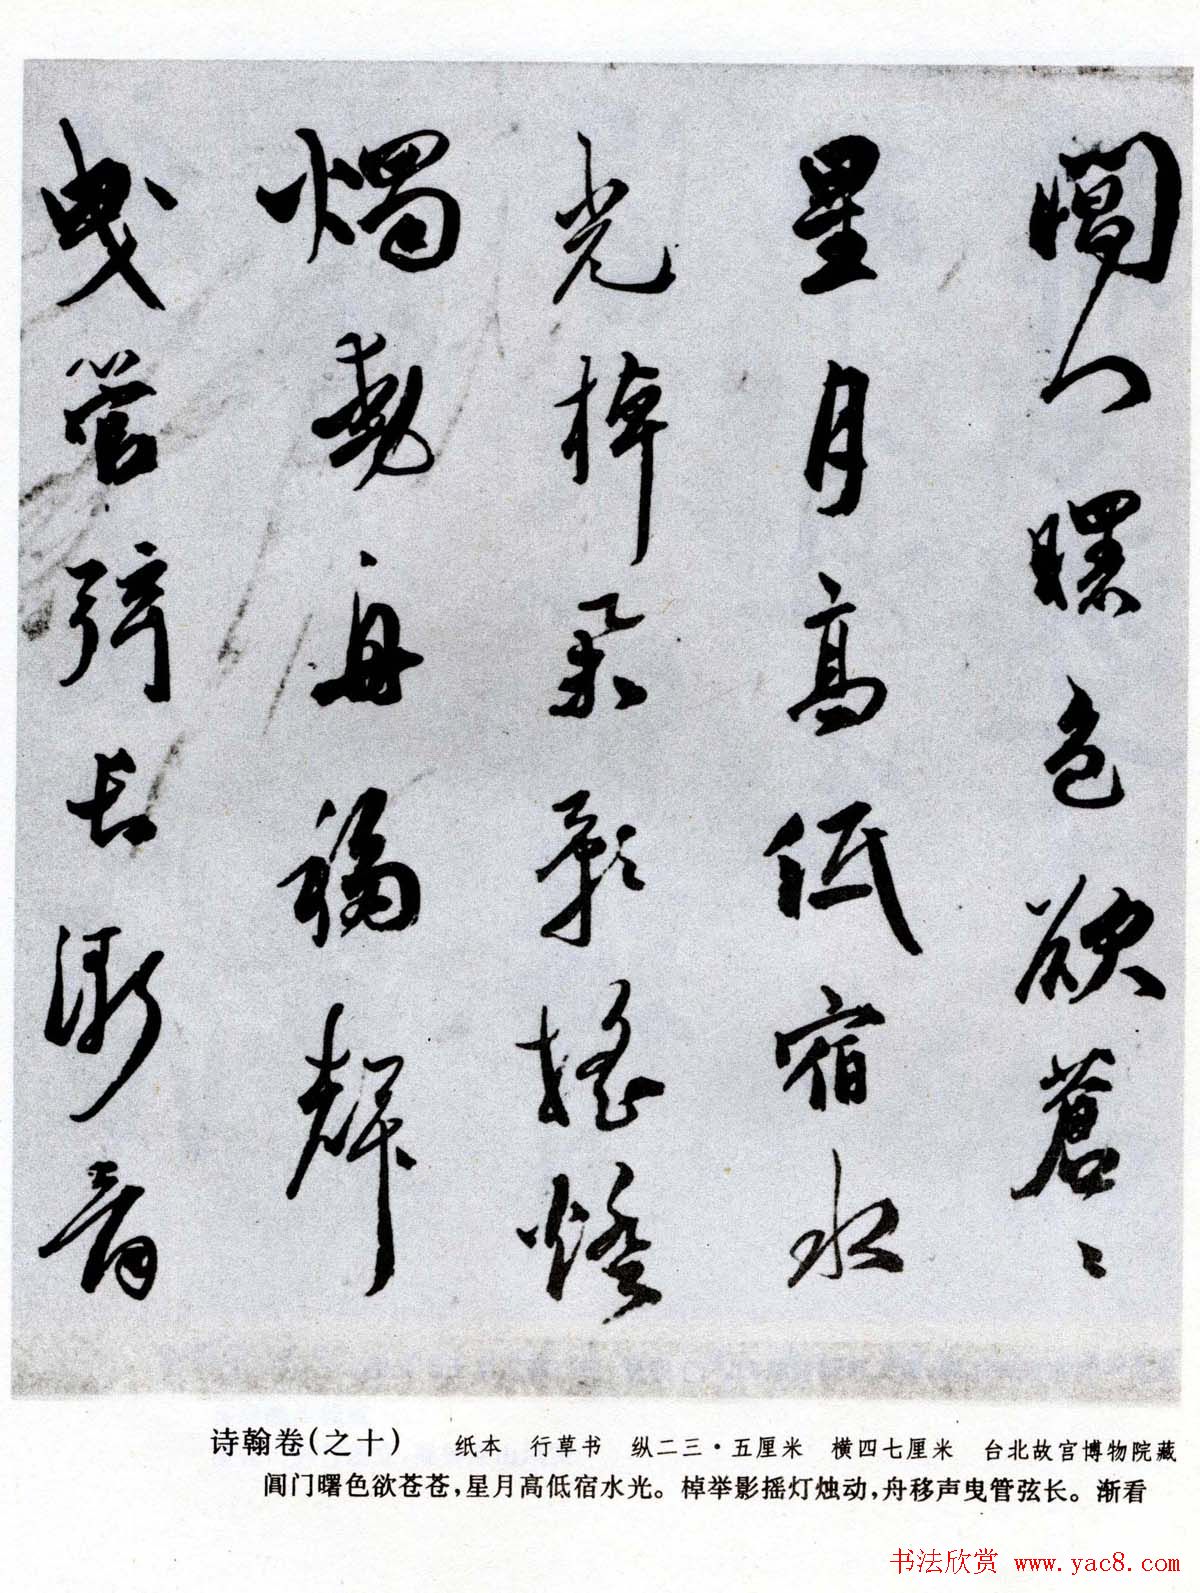 閶門曙色欲蒼〻
星月高低宿水
光棹舉影搖燈
燭動舟移聲
曳管弦長漸看
诗翰卷(之十) 纸本 行草书 纵二三·五厘米 横四七厘米 台北故宫博物院藏
阊门曙色欲苍苍,星月高低宿水光。棹举影摇灯烛动,舟移声曳管弦长。渐看
书法欣赏 www.yac8.com